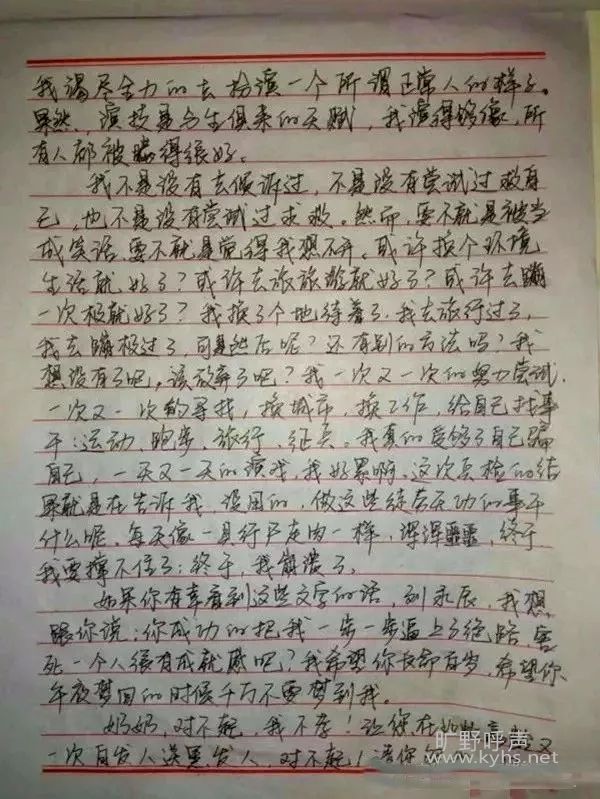 我竭尽全力的去扮演一个所谓正常人的样子。
果然,演技是与生俱来的天赋,我演得够像,所
有人都被瞒得很好。
我不是没有去倾诉过,不是没有尝试过救自
己,也不是没有尝试过求救。然而,要不就是被当
成笑话,要不就是觉得我想不开。或许换个环境
生活就好了?或许去旅旅游就好了?或许去蹦
一次极就好了?我换了个地待着了,我去旅行过了,
我去蹦极过了,可是然后呢?还有别的方法吗?我
想没有了吧。该放弃了吧?我一次又一次的努力尝试,
一次又一次的寻找,换城市,换工作,给自己找事
干:运动、跑步、旅行、征兵。我真的受够了自己骗
自己,一天又一天的演戏,我好累啊。这次质检的结
果就是在告诉我,没用的,做这些徒劳无功的事干
什么呢。每天像一具行尸走肉一样,浑浑噩噩,终于
我要撑不住了;终于,我崩溃了。
如果你有幸看到这些文字的话,刘永辰,我想
跟你说:你成功的把我一步一步逼上了绝路,害
死一个人很有成就感吧?我希望你长命百岁,希望你
午夜梦回的时候千万不要梦到我。
奶奶,对不起,我不孝!让您在 又
一次白发人送黑发人,对不起!请你
旷野呼声
www.kyhs.net